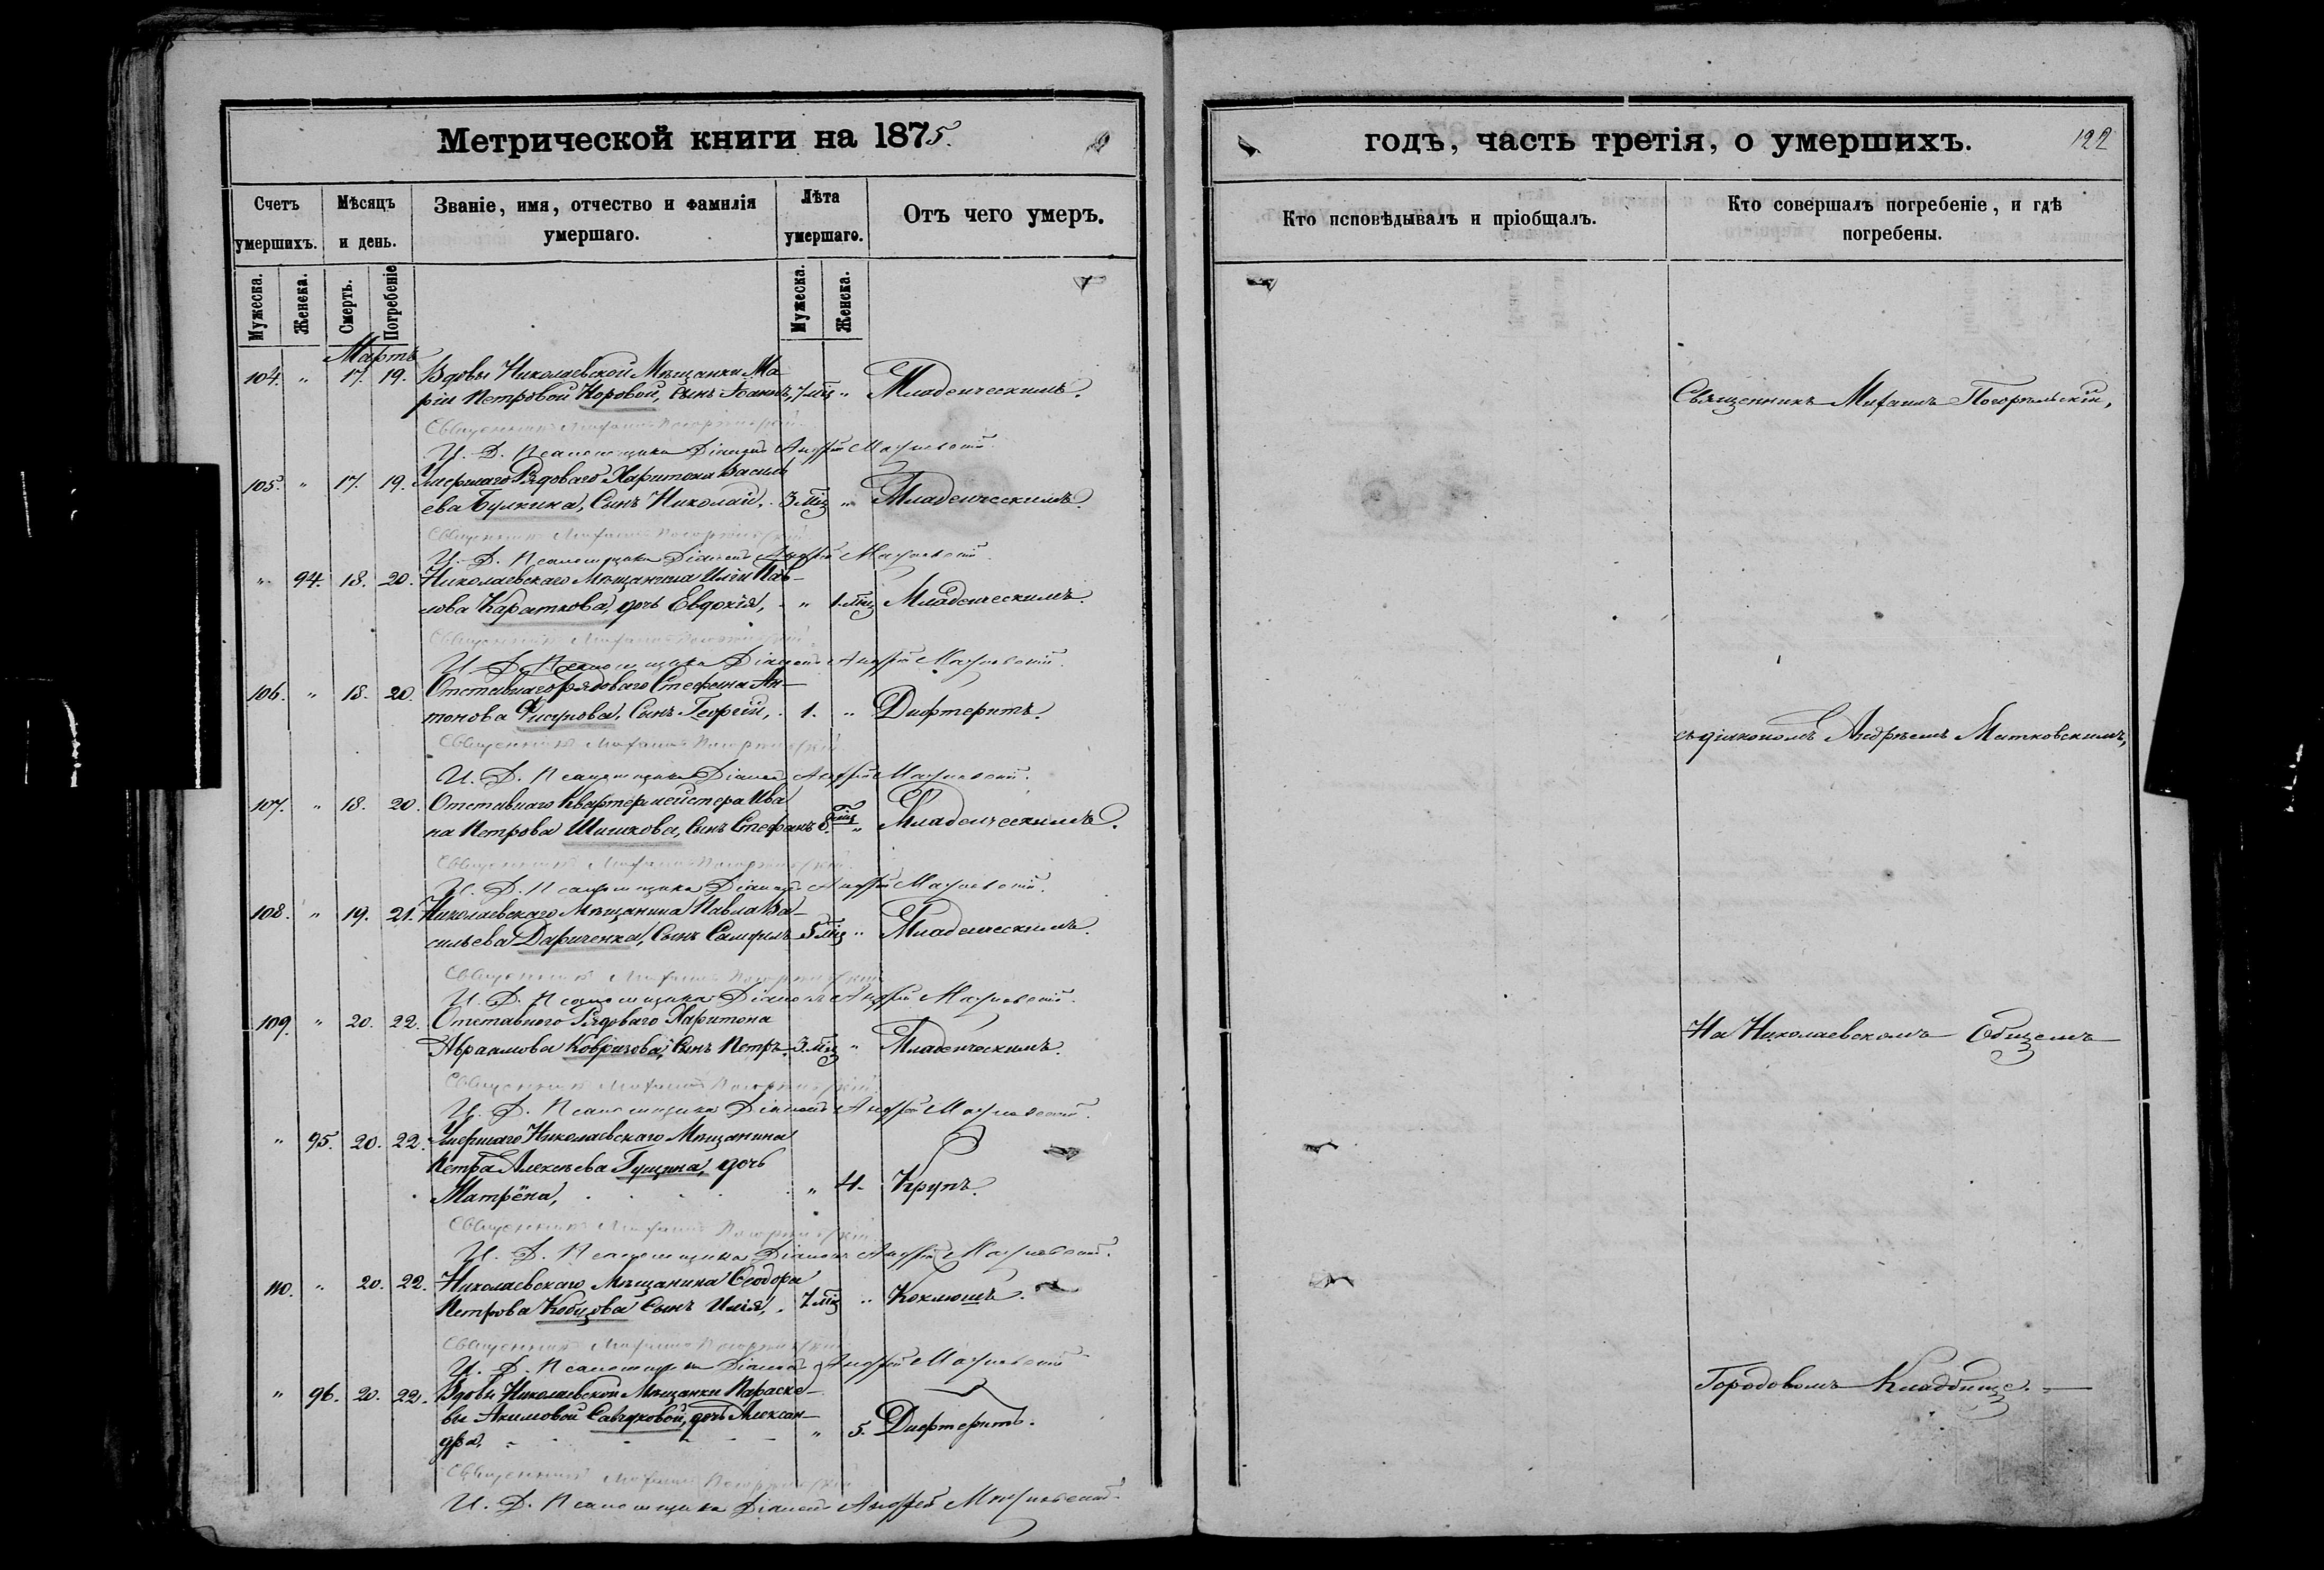 Метрической книги на 1875.
годъ, часть третія, о умершихъ.
122
Счетъ умершихъ.
Мѣсяцъ и день.
Званіе, имя, отчество и фамилія умершаго.
Лѣта умершаго.
Отъ чего умеръ.
Кто исповѣдывалъ и пріобщалъ.
Кто совершалъ погребеніе, и гдѣ погребены.
Мужеска. Женска. Смерть. Погребеніе Мужеска. Женска.
Мартъ
104. " 17. 19. Вдовы Николаевской Мѣщанки Ма-
ріи Петровой Норовой, сынъ Іоаннъ, 7 мѣц " Младенческимъ.
Священникъ Михаилъ Погорѣльскій
И. Д. Псаломщика Діаконъ Андрей Матковскій.
105. " 17. 19. Умершаго Рядоваго Харитона Василь
ева Булкина, Сынъ Николай, 3 мѣц " Младенческимъ.
Священникъ Михаилъ Погорѣльскій
И. Д. Псаломщика Діаконъ Андрей Матковскій.
" 94. 18. 20. Николаевскаго Мѣщанина Иліи Пав-
лова Караткова, дочь Евдокія, " 1 мѣц Младенческимъ.
Священникъ Михаилъ Погорѣльскій.
И. Д. Псаломщика Діаконъ Андрей Матковскій.
106. " 18. 20. Отставнаго рядоваго Стефана Ан-
тонова Фисунова, Сынъ Георгій, 1. " Дифтеритъ.
Священникъ Михаилъ Погорѣльскій
И. Д. Псаломщика Діаконъ Андрей Матковскій.
107. " 18. 20. Отставнаго Квартермейстера Ива
на Петрова Шишкова, Сынъ Стефанъ 8. мѣц " Младенческимъ.
Священникъ Михаилъ Погорѣльскій.
И. Д. Псаломщика Діаконъ Андрей Матковскій.
108. " 19. 21. Николаевскаго Мѣщанина Павла Ва-
сильева Дариченка, Сынъ 5 мѣц " Младенческимъ.
Священникъ Михаилъ Погорѣльскій
И. Д. Псаломщика Діаконъ Андрей Матковскій.
109. " 20. 22. Отставного Рядоваго Харитона
Авраамова Ковразова, Сынъ Петръ. 3. мѣц " Младенческимъ.
Священникъ Михаилъ Погорѣльскій
И. Д. Псаломщика Діаконъ Андрей Матковскій.
" 95. 20. 22. Умершаго Николаевскаго Мѣщанина
Петра Алексѣева Гущина, дочь
Матрёна, " 4. Крупъ.
Священникъ Михаилъ Погорѣльскій.
И. Д. Псаломщика Діаконъ Андрей Матковскій.
110. " 20. 22. Николаевскаго Мѣщанина Ѳеодора
Петрова Кобцова Сынъ Илія, 7 мѣц " Коклюшъ.
Священникъ Михаилъ Погорѣльскій
И. Д. Псаломщика Діаконъ Андрей Матковскій
" 96. 20. 22. Вдовы Николаевской Мѣщанки Параске-
вы Акимовой Савчуковой, дочь Алексан-
дра, " 5. Дифтеритъ.
Священникъ Михаилъ Погорѣльскій
И. Д. Псаломщика Діаконъ Андрей Матковскій.
Священникъ Михаилъ Погорѣльскій,
съ діякономъ Андреемъ Матковскимъ,
На Николаевскомъ Общемъ
Городовомъ Кладбище.